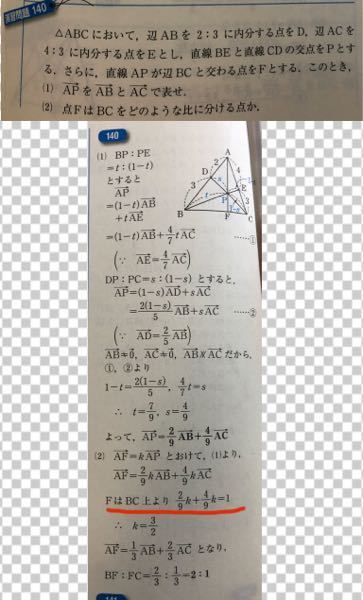 演習問題 140
△ABCにおいて，辺ABを2：3に内分する点をD，辺ACを
4：3に内分する点をEとし，直線BEと直線CDの交点をPと
する．さらに，直線APが辺BCと交わる点をFとする．このとき，
(1) AP→をAB→とAC→で表せ．
(2) 点FはBCをどのような比に分ける点か．
140
(1) BP：PE
＝t：(1−t)
とすると
AP→
＝(1−t)AB→
＋tAE→
＝(1−t)AB→＋4/7 tAC→ ……①
(∵ AE→＝4/7 AC→)
DP：PC＝s：(1−s) とすると，
AP→＝(1−s)AD→＋sAC→
＝2(1−s)/5 AB→＋sAC→ ……②
(∵ AD→＝2/5 AB→)
AB→≠0→，AC→≠0→，AB→∦AC→ だから，
①，②より
1−t＝2(1−s)/5，4/7 t＝s
∴ t＝7/9，s＝4/9
よって，AP→＝2/9 AB→＋4/9 AC→
(2) AF→＝kAP→ とおけて，(1)より，
AF→＝2/9 kAB→＋4/9 kAC→
FはBC上より 2/9 k＋4/9 k＝1
∴ k＝3/2
AF→＝1/3 AB→＋2/3 AC→ となり，
BF：FC＝2/3：1/3＝2：1
A
2
4
D
s
E
3
t
P
3
1−s
B
F
C
141